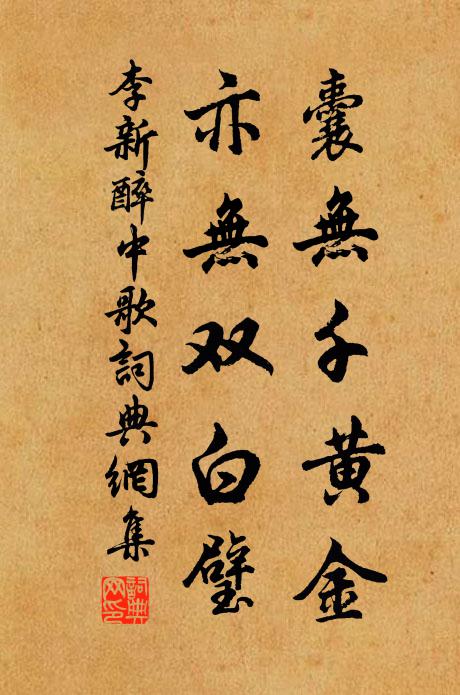 囊無千黃金
亦無双白璧
李新醉中歌詞典網集
詞典
网印